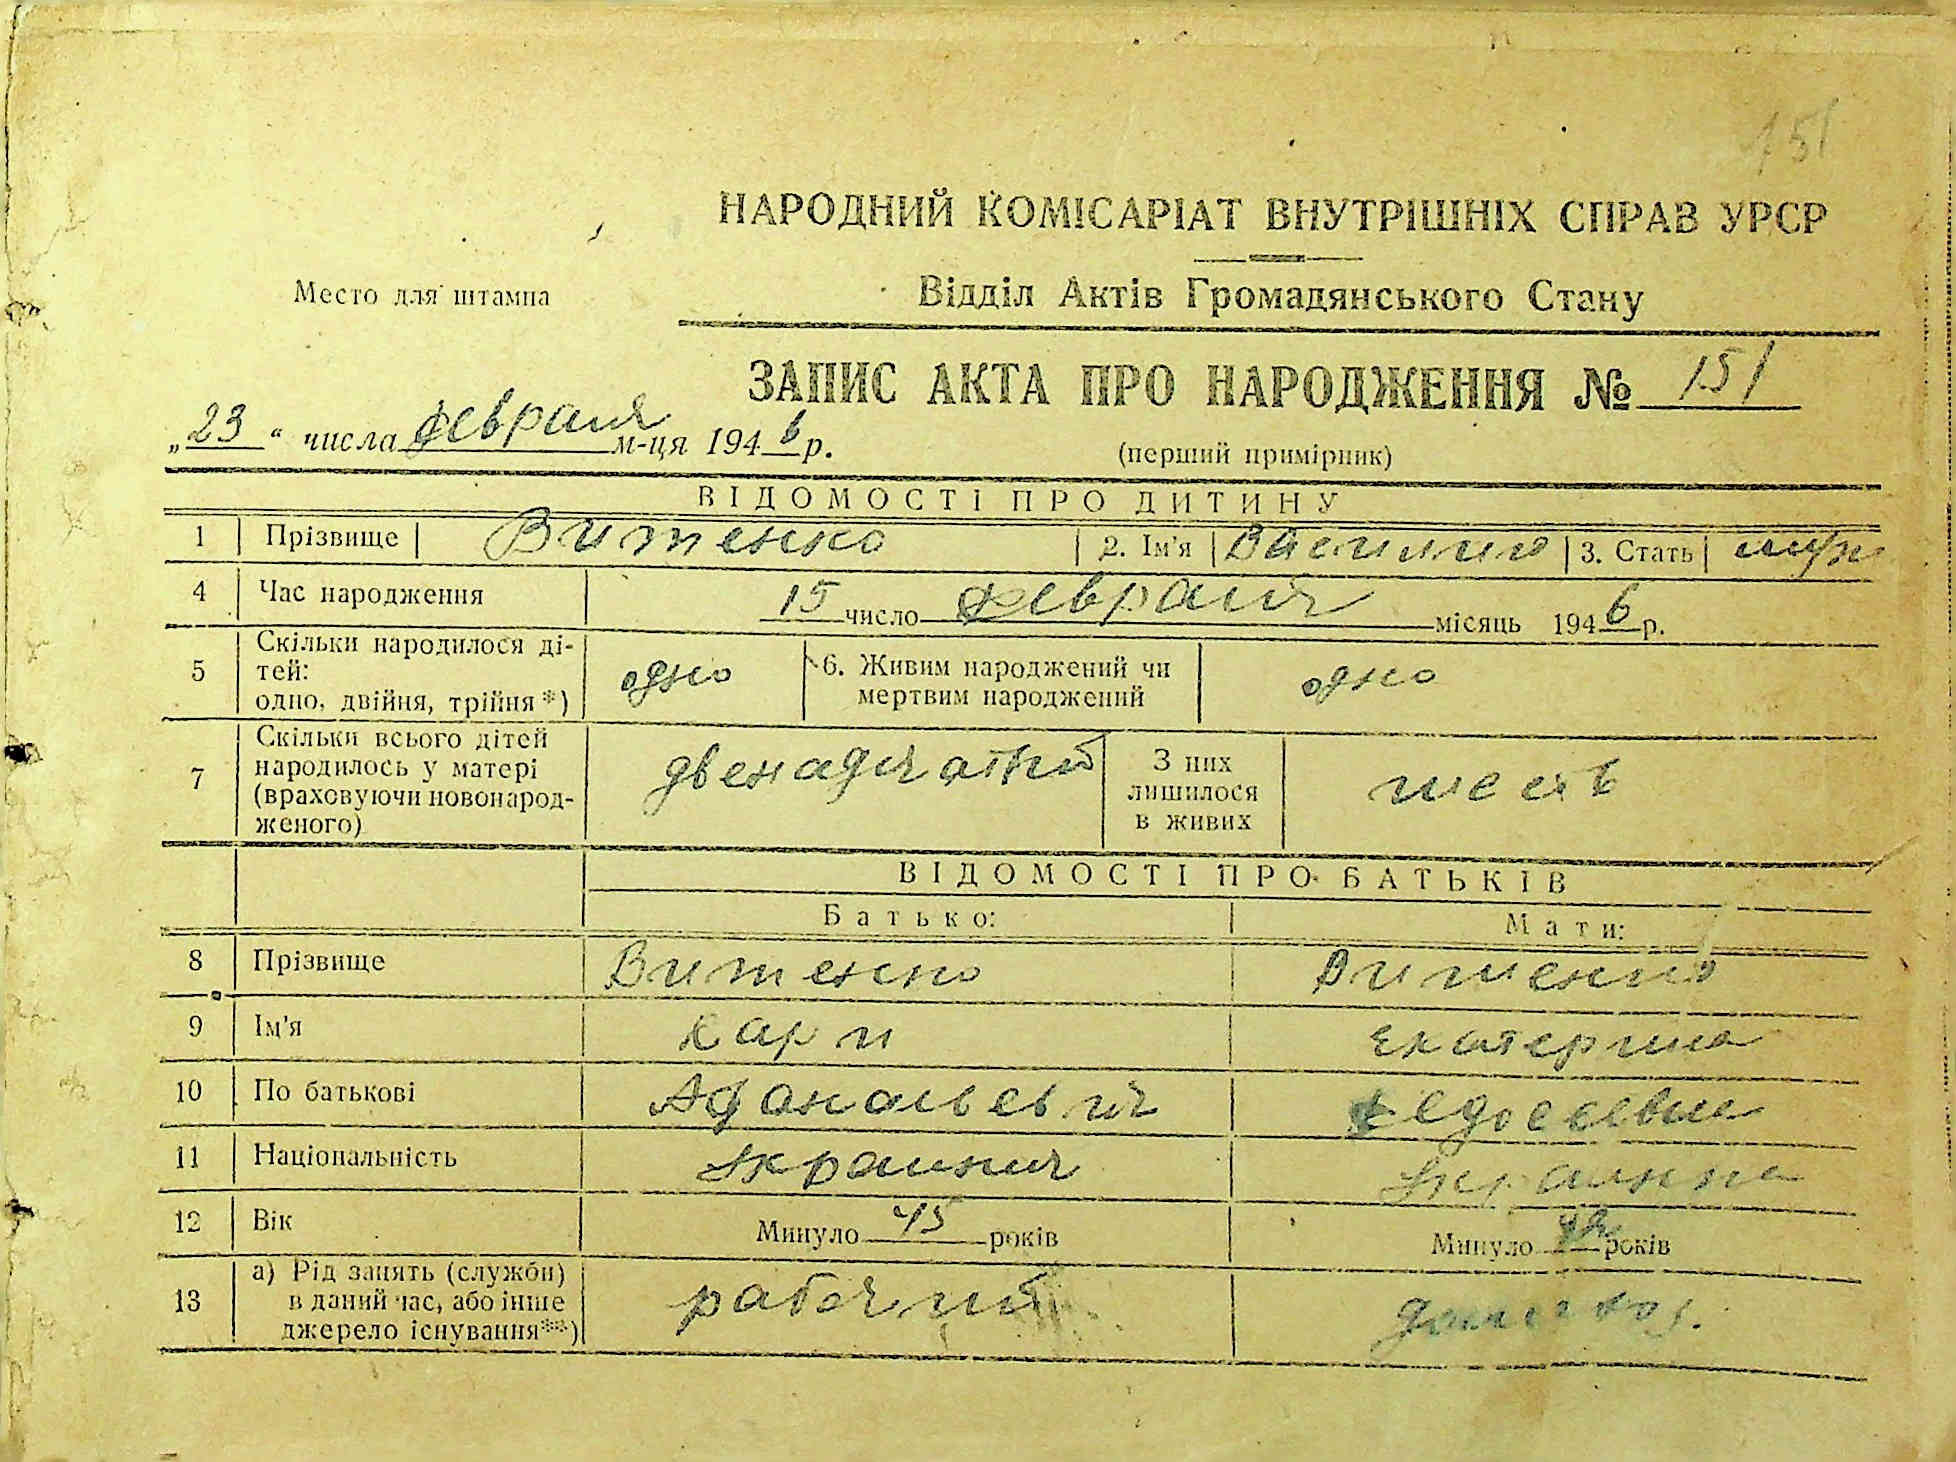 151
НАРОДНИЙ КОМІСАРІАТ ВНУТРІШНІХ СПРАВ УРСР
Место для штампа
Відділ Актів Громадянського Стану
ЗАПИС АКТА ПРО НАРОДЖЕННЯ № 151
„23“ числа февраля м-ця 1946 р.
(перший примірник)
ВІДОМОСТІ ПРО ДИТИНУ
1 Прізвище Витенко 2. Ім'я Василий 3. Стать муж
4 Час народження 15 число февраля місяць 1946 р.
5 Скільки народилося ді-
тей:
одно, двійня, трійня*) одно 6. Живим народжений чи
мертвим народжений одно
7 Скільки всього дітей
народилось у матері
(враховуючи новонарод-
женого) двенадцатый З них
лишилося
в живих шесть
ВІДОМОСТІ ПРО БАТЬКІВ
Батько: Мати:
8 Прізвище Витенко Витенко
9 Ім'я Карп Екатерина
10 По батькові Афанасьевич Федосеевна
11 Національність Украинец Украинка
12 Вік Минуло 45 років Минуло 42 років
13 а) Рід занять (служби)
в даний час, або інше
джерело існування**) рабочий домохоз.